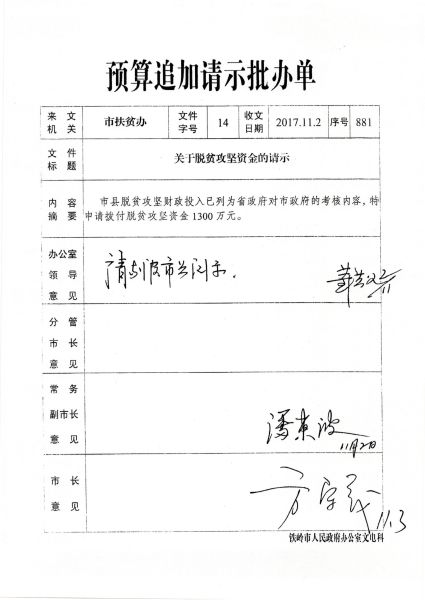 预算追加请示批办单
来文机关 市扶贫办 文件字号 14 收文日期 2017.11.2 序号 881
文件标题 关于脱贫攻坚资金的请示
内容摘要 市县脱贫攻坚财政投入已列为省政府对市政府的考核内容,特
申请拨付脱贫攻坚资金1300万元。
办公室
领导
意见
分管
市长
意见
常务
副市长
意见
潘东波
11月2日
市长
意见
11.3
铁岭市人民政府办公室文电科